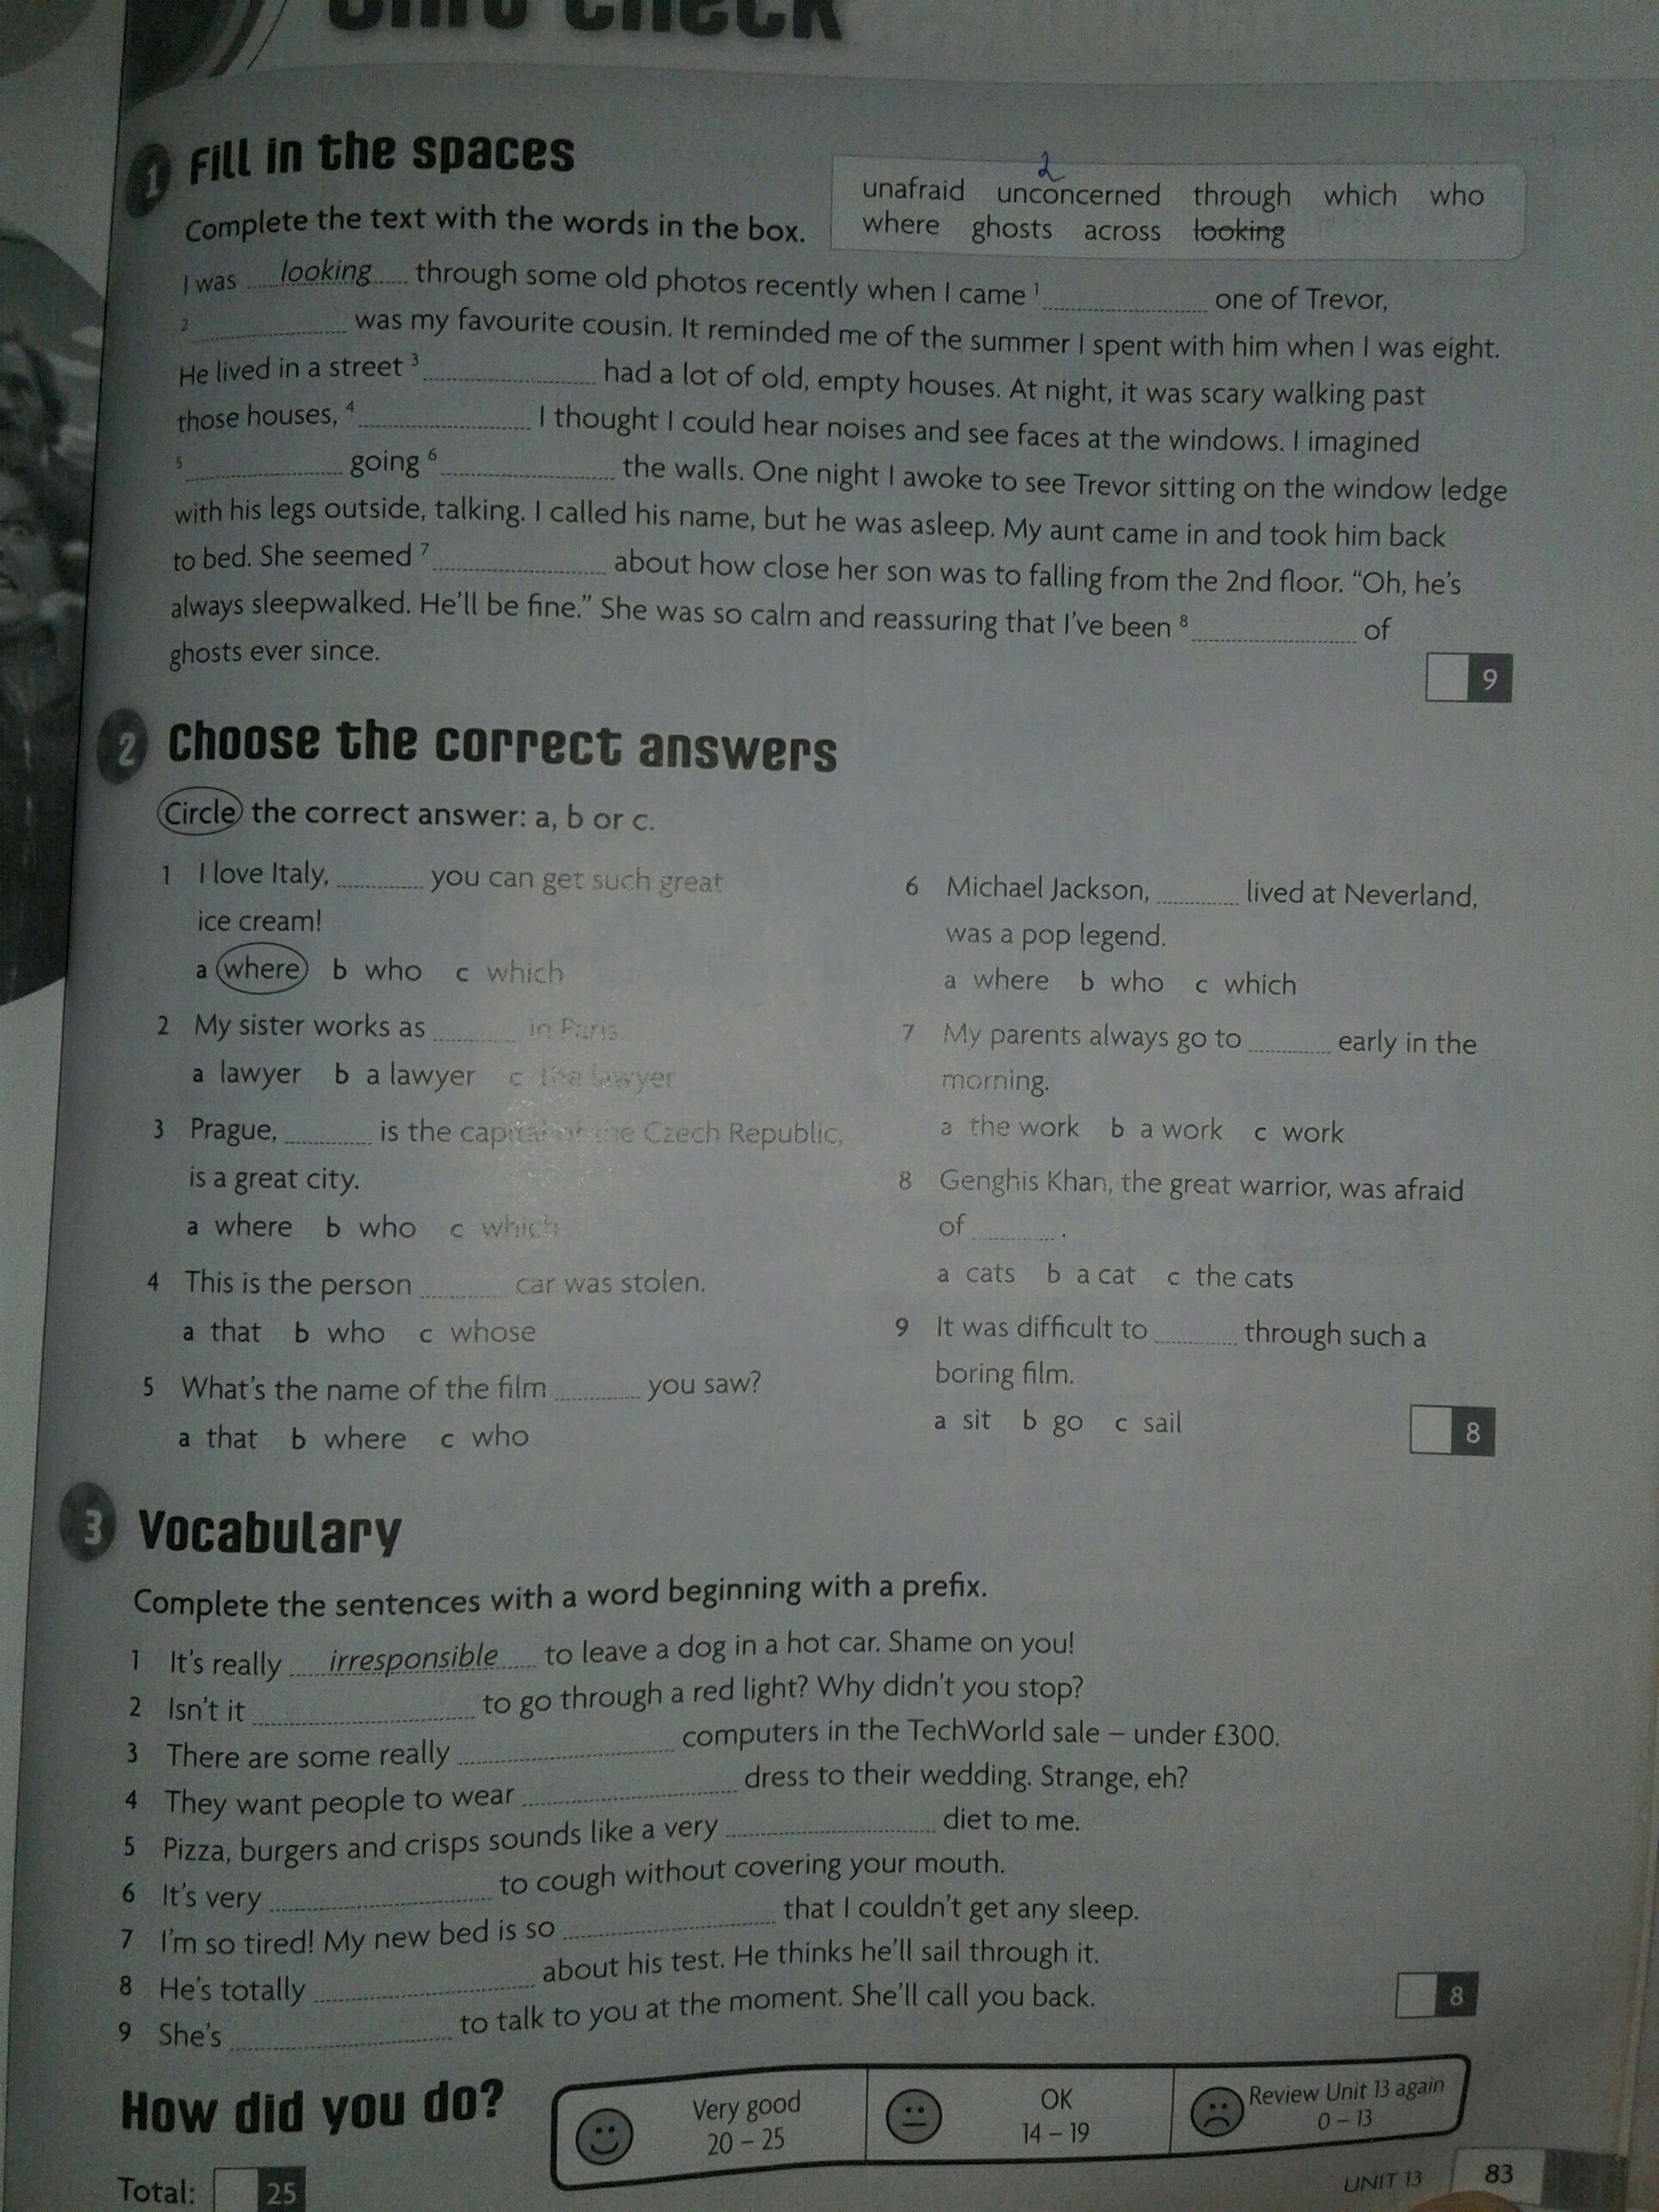 Unit Check
1 Fill in the spaces
Complete the text with the words in the box.
2
unafraid unconcerned through which who
where ghosts across looking
I was looking through some old photos recently when I came 1 one of Trevor,
2 was my favourite cousin. It reminded me of the summer I spent with him when I was eight.
He lived in a street 3 had a lot of old, empty houses. At night, it was scary walking past
those houses, 4 I thought I could hear noises and see faces at the windows. I imagined
5 going 6 the walls. One night I awoke to see Trevor sitting on the window ledge
with his legs outside, talking. I called his name, but he was asleep. My aunt came in and took him back
to bed. She seemed 7 about how close her son was to falling from the 2nd floor. “Oh, he’s
always sleepwalked. He’ll be fine.” She was so calm and reassuring that I’ve been 8 of
ghosts ever since.
9
2 Choose the correct answers
Circle the correct answer: a, b or c.
1 I love Italy, you can get such great
ice cream!
a where b who c which
2 My sister works as in Paris.
a lawyer b a lawyer c the lawyer
3 Prague, is the capital of the Czech Republic,
is a great city.
a where b who c which
4 This is the person car was stolen.
a that b who c whose
5 What’s the name of the film you saw?
a that b where c who
6 Michael Jackson, lived at Neverland,
was a pop legend.
a where b who c which
7 My parents always go to early in the
morning.
a the work b a work c work
8 Genghis Khan, the great warrior, was afraid
of .
a cats b a cat c the cats
9 It was difficult to through such a
boring film.
a sit b go c sail
8
3 Vocabulary
Complete the sentences with a word beginning with a prefix.
1 It’s really irresponsible to leave a dog in a hot car. Shame on you!
2 Isn’t it to go through a red light? Why didn’t you stop?
3 There are some really computers in the TechWorld sale – under £300.
4 They want people to wear dress to their wedding. Strange, eh?
5 Pizza, burgers and crisps sounds like a very diet to me.
6 It’s very to cough without covering your mouth.
7 I’m so tired! My new bed is so that I couldn’t get any sleep.
8 He’s totally about his test. He thinks he’ll sail through it.
9 She’s to talk to you at the moment. She’ll call you back.
8
How did you do?
Very good
20 – 25
OK
14 – 19
Review Unit 13 again
0 – 13
Total: 25
UNIT 13 83